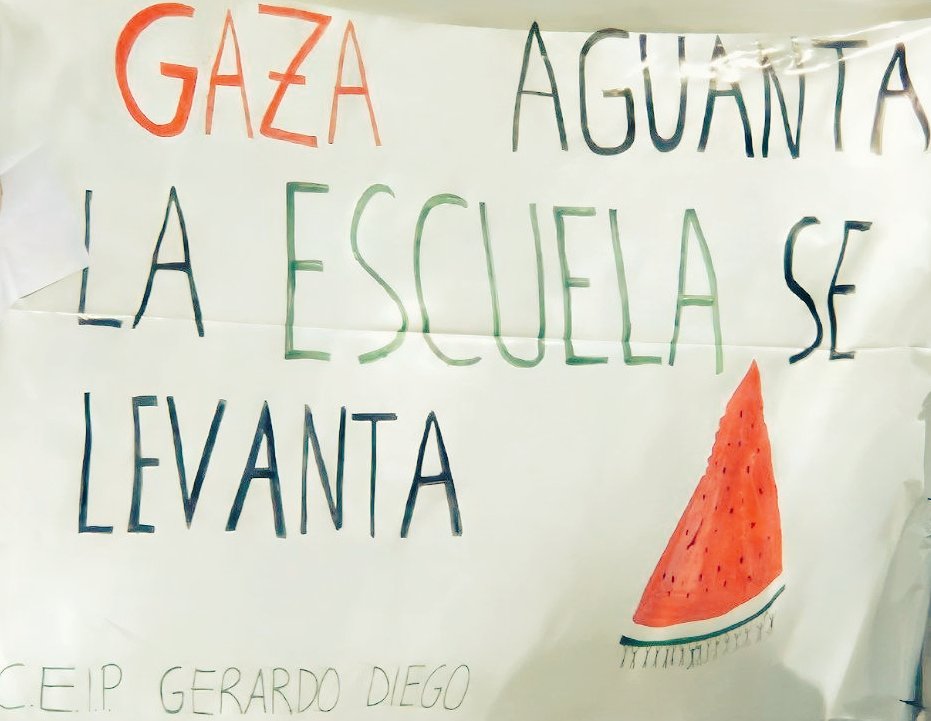 GAZA AGUANTA
LA ESCUELA SE
LEVANTA
C.E.I.P. GERARDO DIEGO